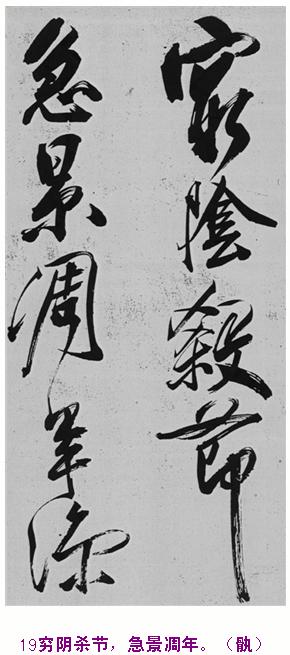 窮陰殺節
急景凋年涼
19穷阴杀节，急景凋年。（骩）